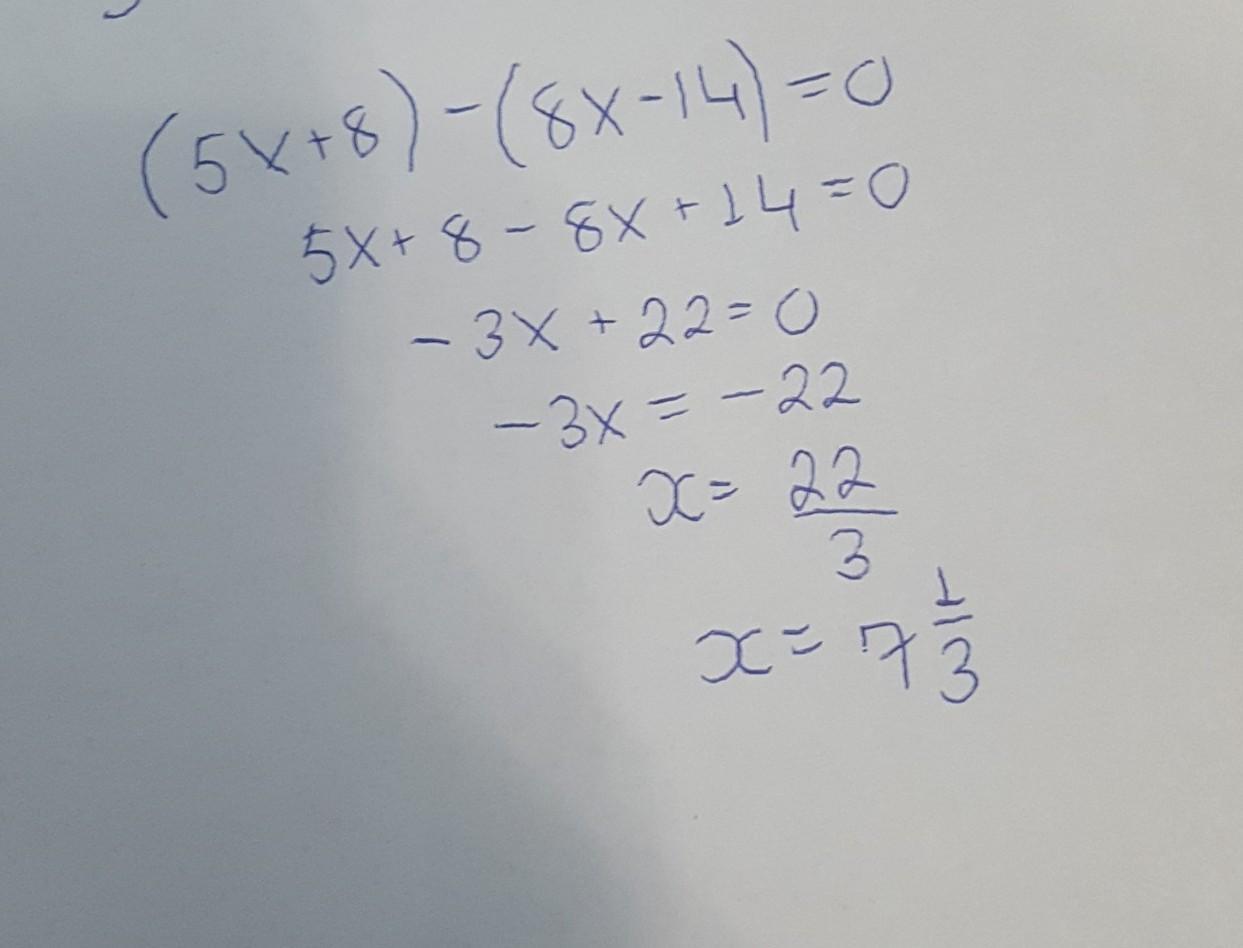 (5x+8)-(8x-14)=0
5x+8-8x+14=0
-3x+22=0
-3x=-22
x=22/3
x=7 1/3